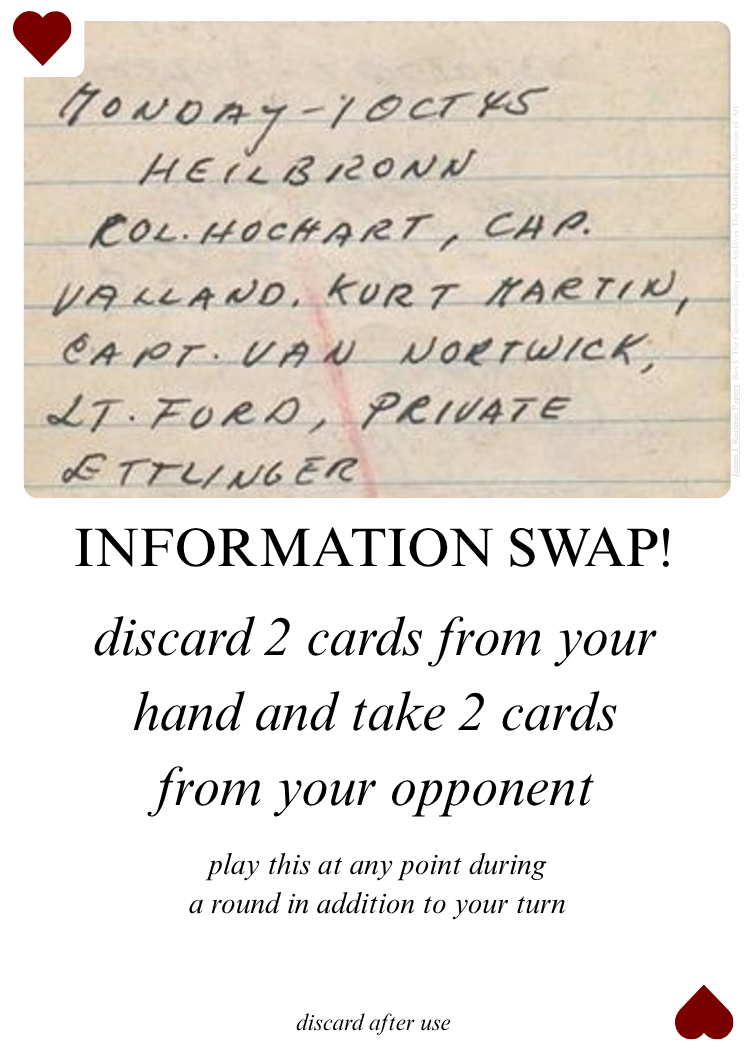 MONDAY - 1 OCT 45
HEILBRONN
COL. HOCHART, CAP.
VALLAND. KURT MARTIN,
CAPT. VAN NORTWICK,
LT. FORD, PRIVATE
ETTLINGER
James J. Rorimer Papers, Box 8, The Cloisters Library and Archives, The Metropolitan Museum of Art
INFORMATION SWAP!
discard 2 cards from your
hand and take 2 cards
from your opponent
play this at any point during
a round in addition to your turn
discard after use